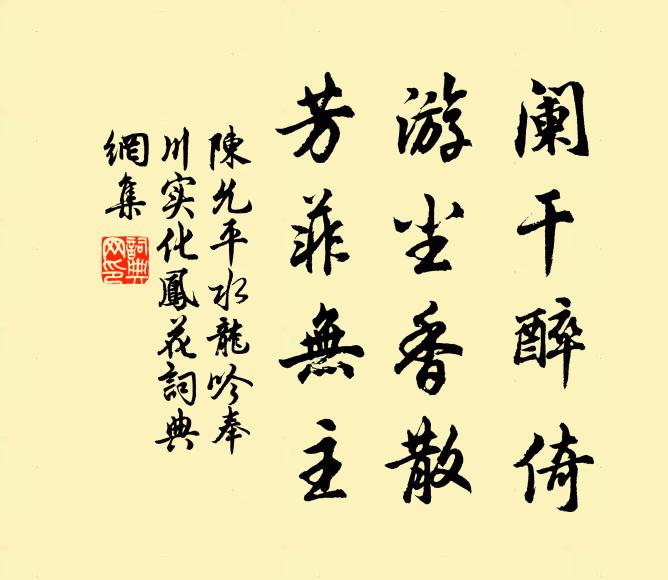 阑干醉倚
游尘香散
芳菲無主
陳允平水龍吟奉
川实化鳳花詞典
網集
詞典
网印